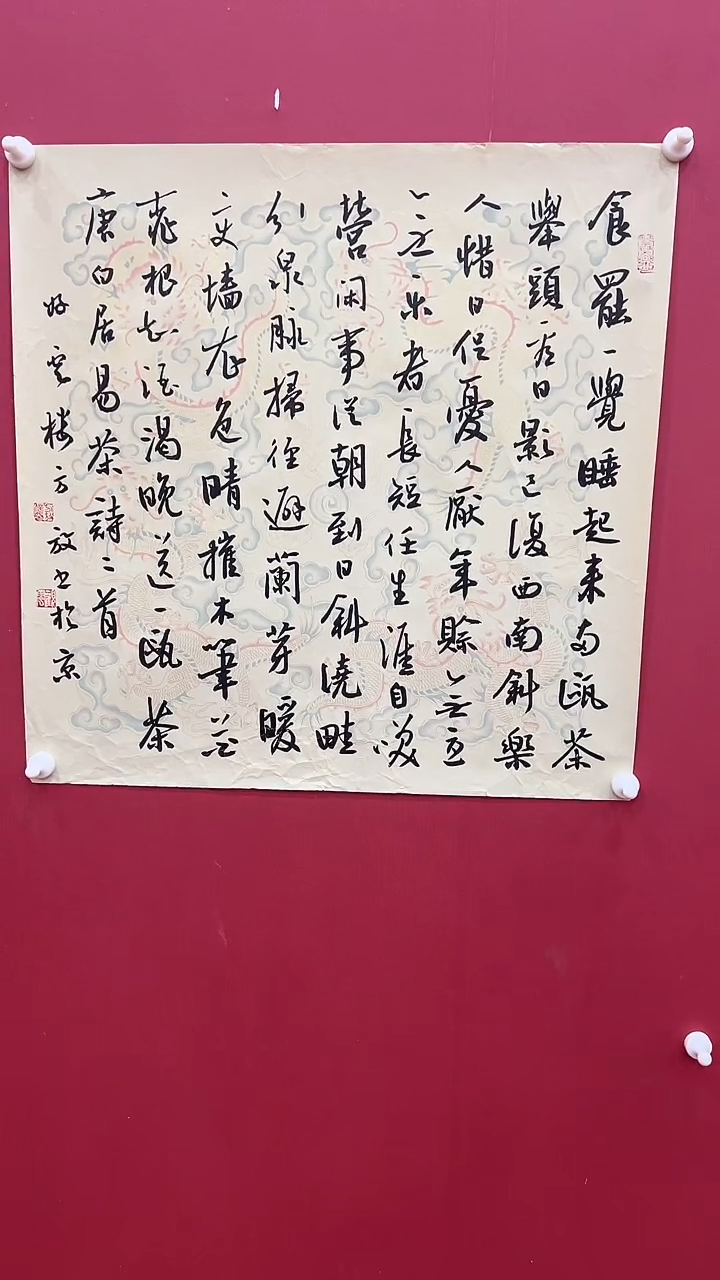 食罷一覺睡起來兩甌茶
舉頭看日影已復西南斜樂
人惜日促憂人厭年賒無憂
無樂者長短任生涯自笑
營閑事從朝到日斜澆畦
引泉脈掃徑避蘭芽暖
變墻衣色晴催木筆花
桃根知酒渴晚送一甌茶
唐白居易茶詩二首
好雲樓方放书於京